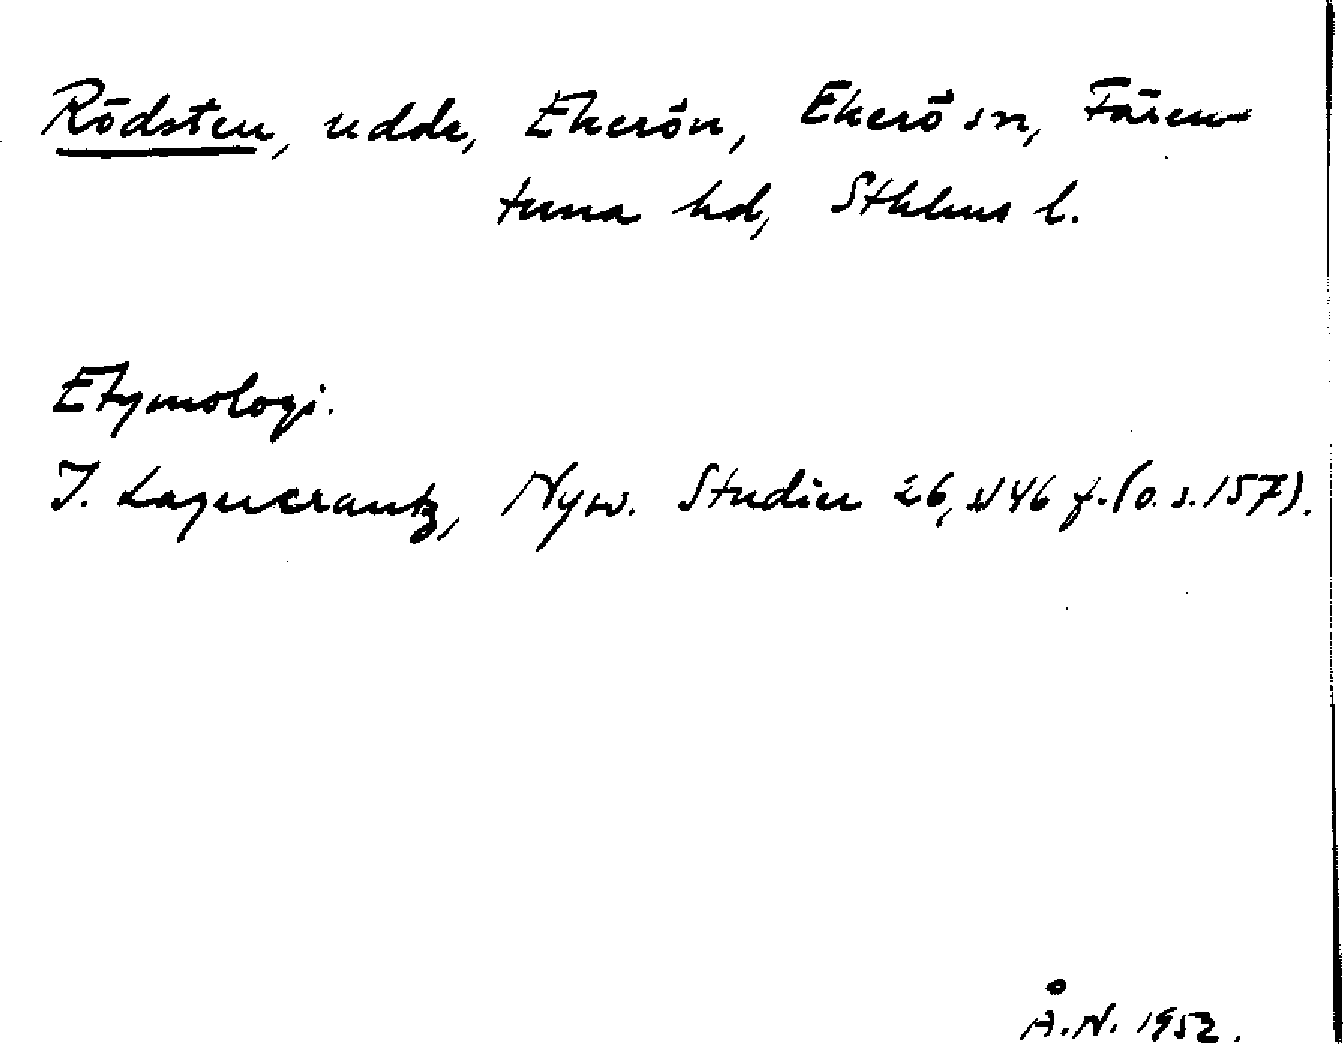 Rödsten, udde, Ekerön, Ekerö sn, Fären-
tuna hd, Sthlms l.
Etymologi.
J. Lagercrantz, Nysv. Studier 26, s 146 f. (o. s. 157).
Å.N. 1952.